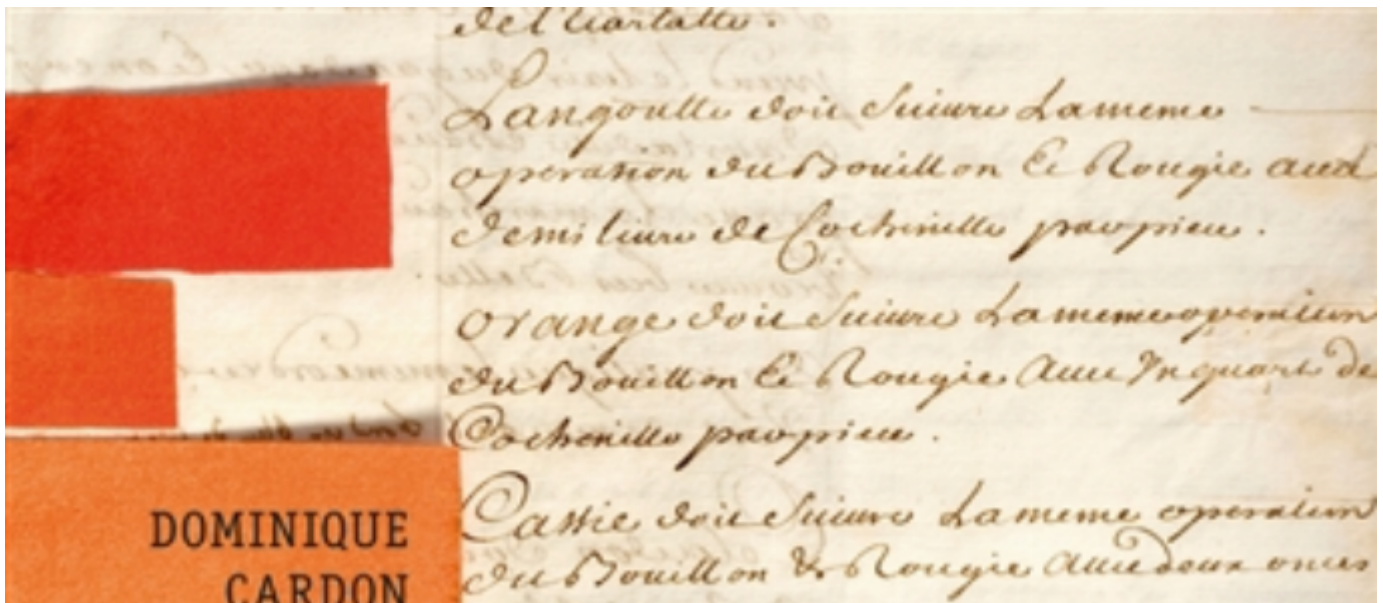 de l'Ecarlatte.
Langoutte doit Suivre La meme
operation du Bouillon Et Rougie aved
demi livre de Cochenille par piece.
orange doit Suivre La meme operation
du Bouillon Et Rougie avec Un quart de
Cochenille par piece.
Cassie doit Suivre La meme operation
du Bouillon & Rougie avec deux onces
DOMINIQUE
CARDON